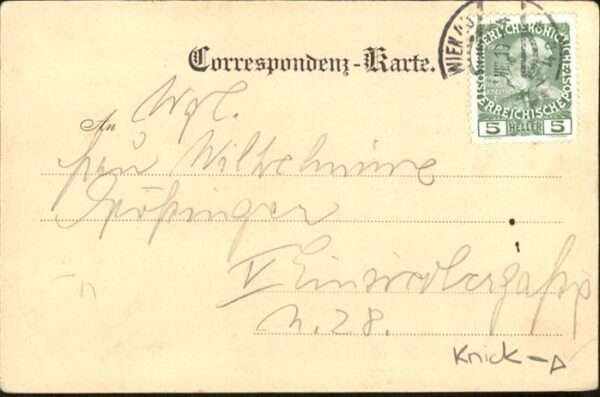 Correspondenz-Karte.
WIEN
KAISERLICH KÖNIGLICHE
ÖSTERREICHISCHE POST
5 HELLER 5
An
Wgl.
Frau Wilhelmine
V Einsiedlergasse
N. 28.
Knick